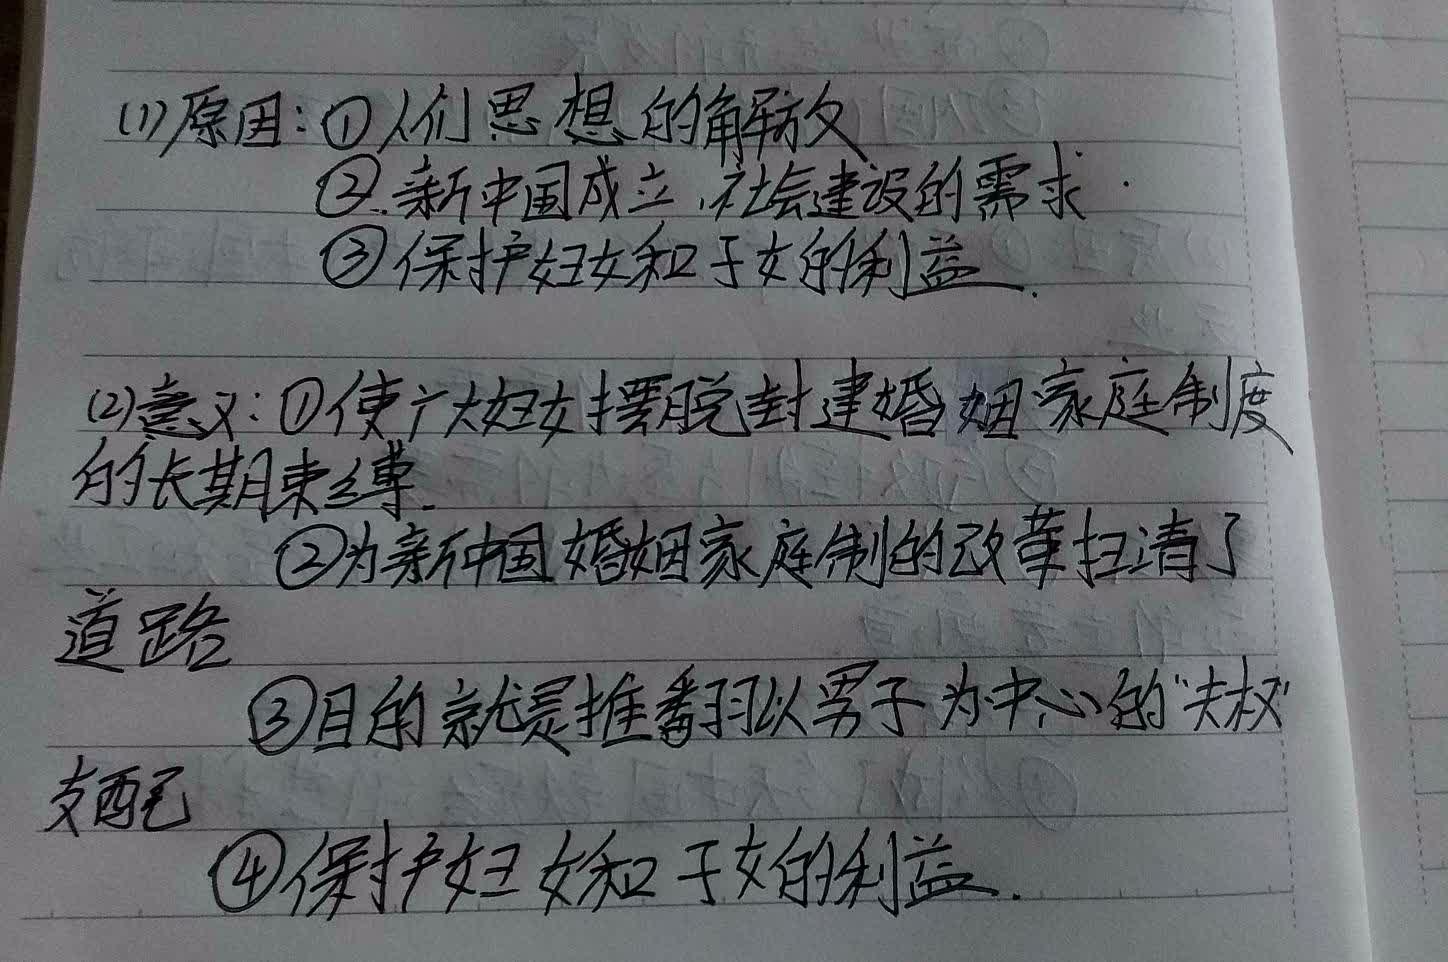 (1)原因:①人们思想的解放
②.新中国成立,社会建设的需求.
③保护妇女和子女的利益.
(2)意义:①使广大妇女摆脱封建婚姻家庭制度
的长期束缚.
②为新中国婚姻家庭制的改革扫清了
道路
③目的就是推翻以男子为中心的"夫权"
支配
④保护妇女和子女的利益.